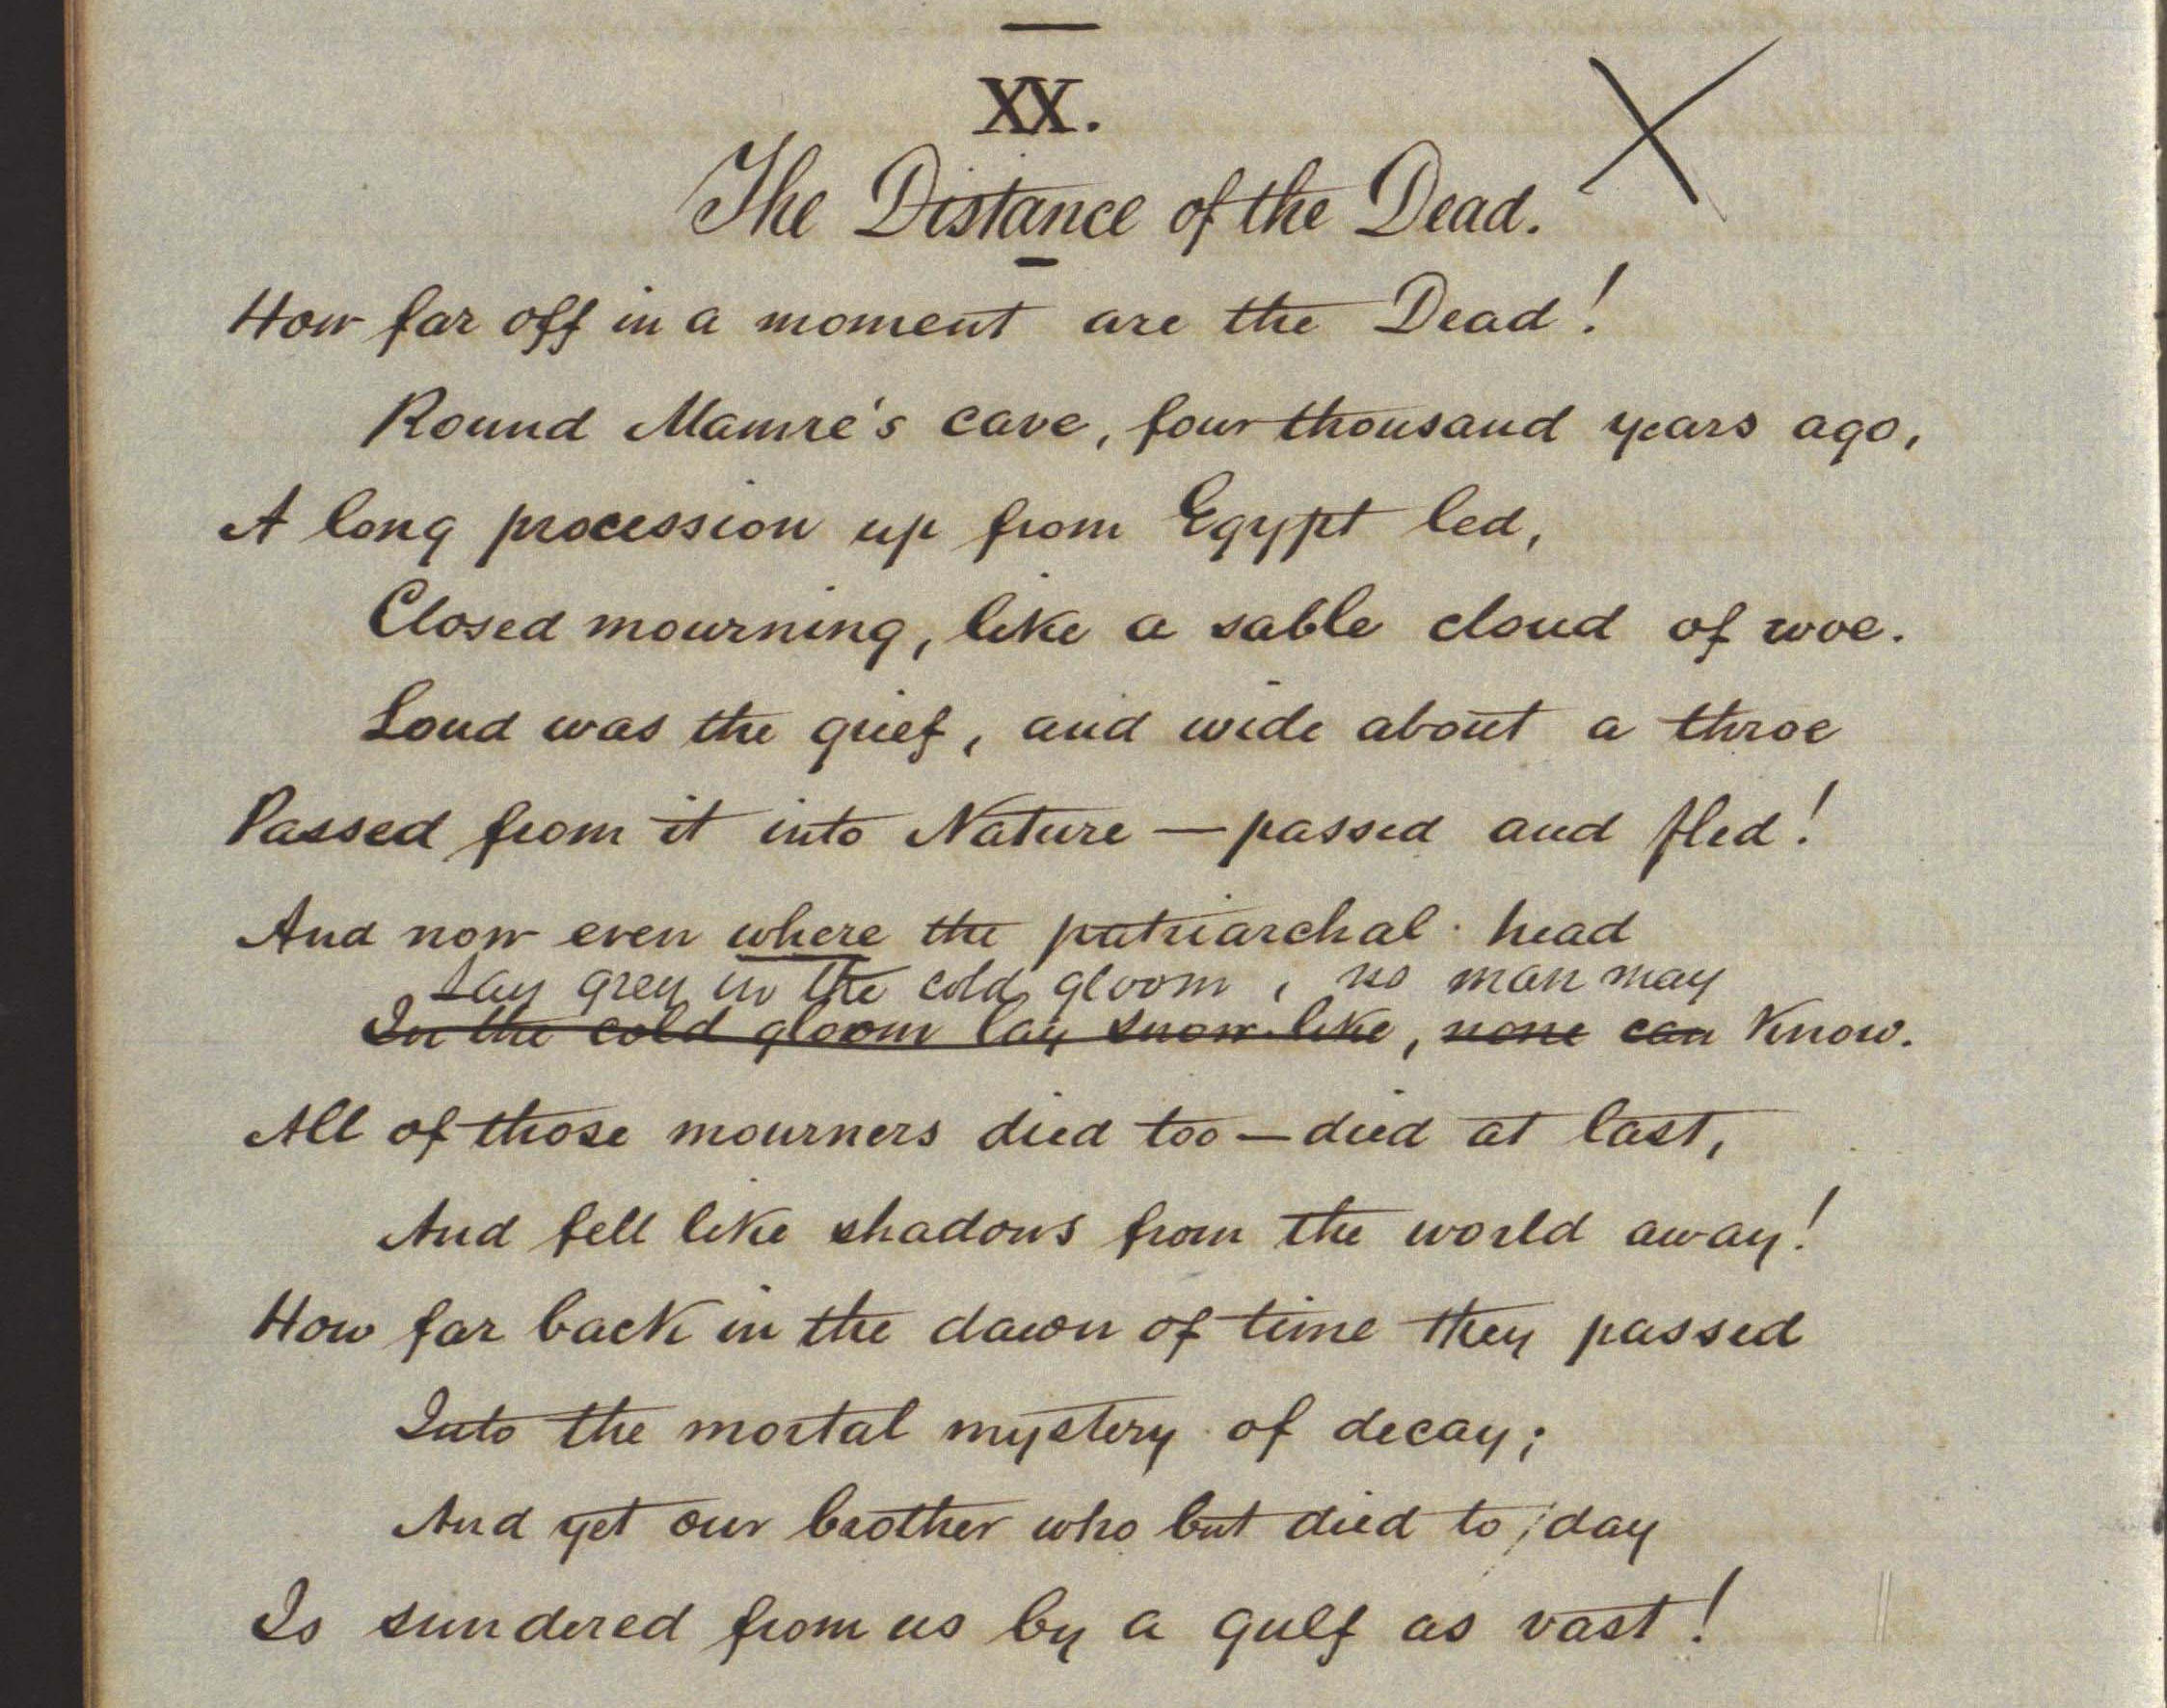 XX.
The Distance of the Dead.
How far off in a moment are the Dead!
Round Mamre's cave, four thousand years ago,
A long procession up from Egypt led,
Closed mourning, like a sable cloud of woe.
Loud was the grief, and wide about a throe
Passed from it into Nature — passed and fled!
And now even where the patriarchal head
Lay grey in the cold gloom, no man may
In the cold gloom lay snow-like, none can know.
All of those mourners died too — died at last,
And fell like shadows from the world away!
How far back in the dawn of time they passed
Into the mortal mystery of decay;
And yet our brother who but died to day
Is sundered from us by a gulf as vast!